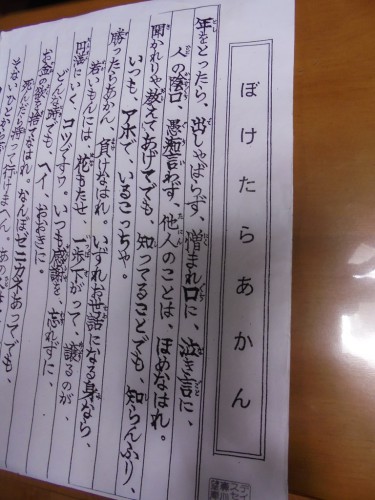 ぼけたらあかん
年をとったら、出しゃばらず、憎まれ口に、泣き言に、
人の陰口、愚痴言わず、他人のことは、ほめなはれ。
聞かれりゃ教えてあげてでも、知ってることでも、知らんふり、
いつも、アホで、いるこっちゃ。
勝ったらあかん、負けなはれ。いずれお世話になる身なら、
若いもんには 花もたせ 一歩下がって、譲るのが、
円満にいく、コツですワ。いつも感謝を 忘れずに、
どんな時でも、ヘイ おおきに。
お金の欲を捨てなはれ。なんぼゼニカネあってでも、
死んだら持って行けまへん。あの